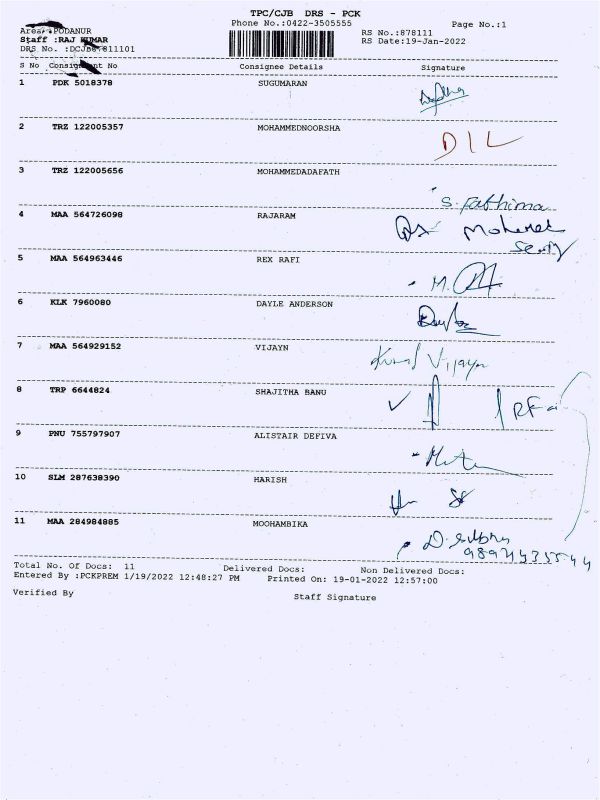 TPC/CJB DRS - PCK
Phone No.:0422-3505555
Page No.:1
Area: PODANUR
RS No.:878111
Staff :RAJ KUMAR
RS Date:19-Jan-2022
DRS No. :DCJB67811101
S No Consignment No Consignee Details Signature
1 PDK 5018378 SUGUMARAN
2 TRZ 122005357 MOHAMMEDNOORSHA DIL
3 TRZ 122005656 MOHAMMEDADAFATH S. Fathima
4 MAA 564726098 RAJARAM
5 MAA 564963446 REX RAFI M.
6 KLK 7960080 DAYLE ANDERSON
7 MAA 564929152 VIJAYN Vijayn
8 TRP 6644824 SHAJITHA BANU
9 PNU 755797907 ALISTAIR DEFIVA
10 SLM 287638390 HARISH
11 MAA 284984885 MOOHAMBIKA
Total No. Of Docs: 11 Delivered Docs: Non Delivered Docs:
Entered By :PCKPREM 1/19/2022 12:48:27 PM Printed On: 19-01-2022 12:57:00
Verified By Staff Signature